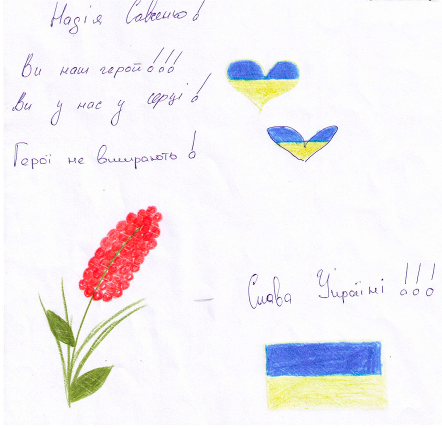 Надія Савченко!
Ви наш герой!!!
Ви у нас у серці!
Герої не вмирають!
Слава Україні!!!